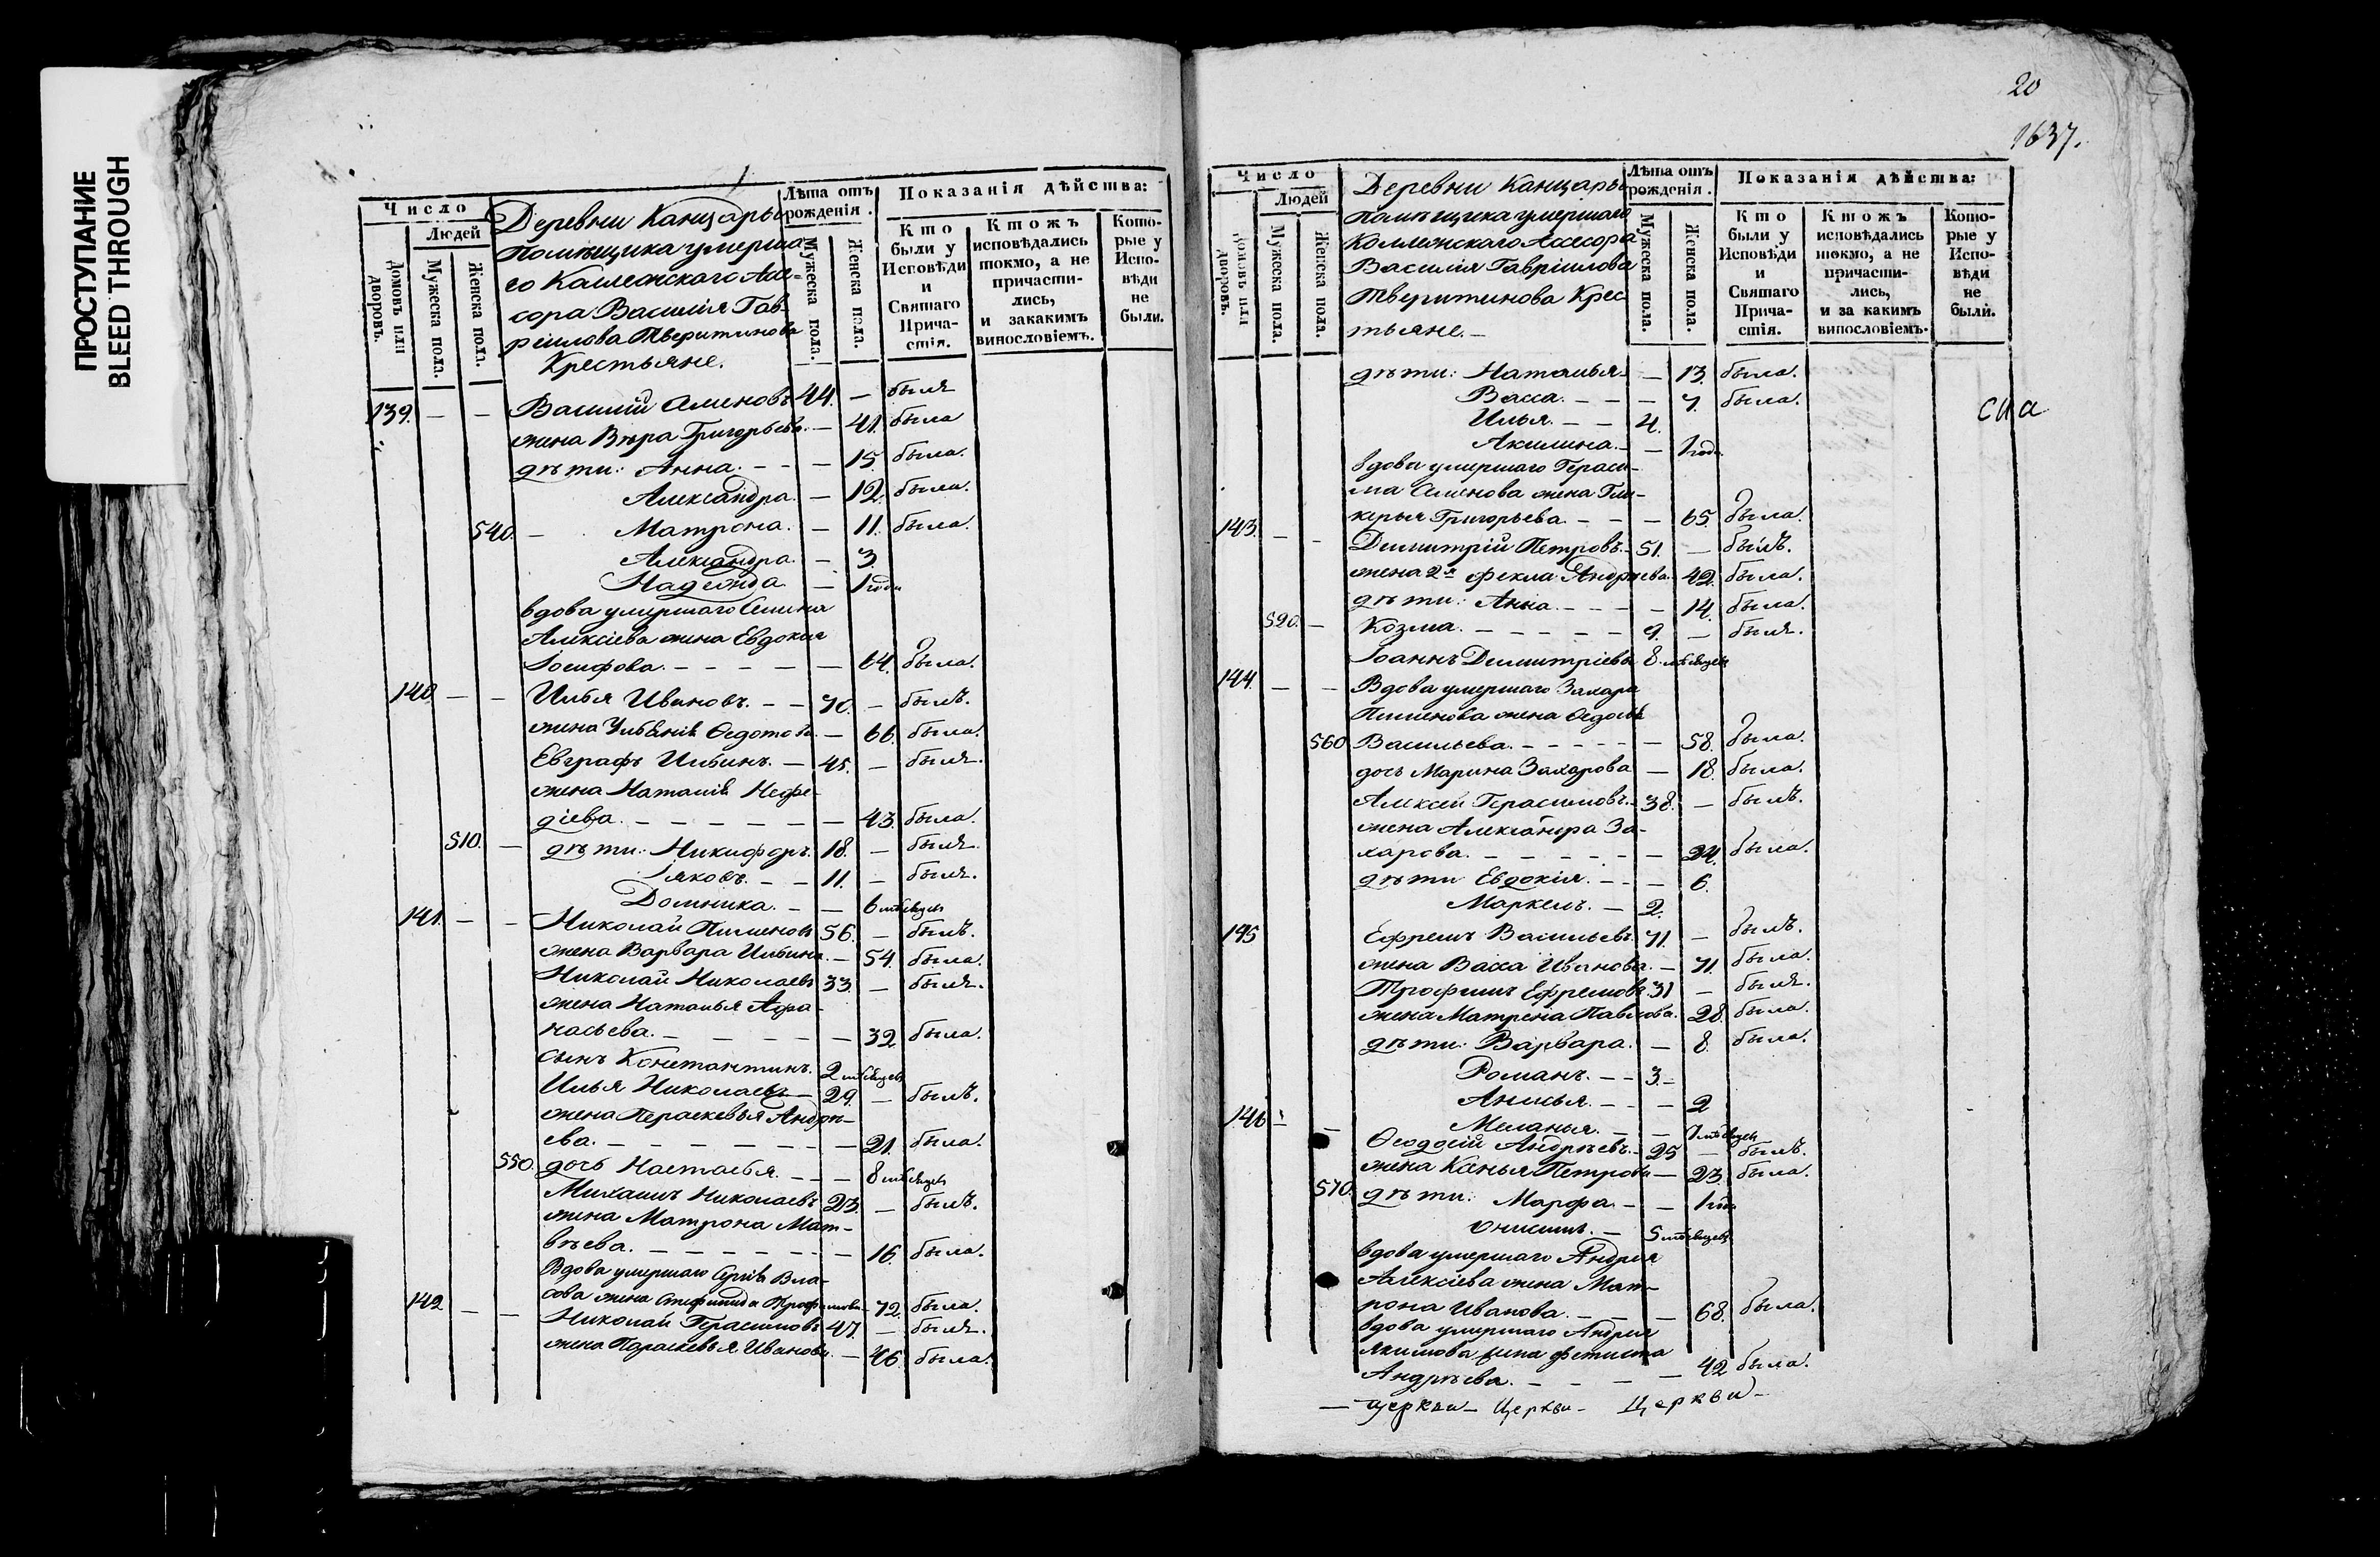 ПРОСТУПАНИЕ
BLEED THROUGH
Число
Людей
Домовъ или дворовъ.
Мужеска пола.
Женска пола.
Деревни Канцары
Помѣщика умерша
го Коллежскаго Ассе=
сора Василія Гав-
ріилова Тверитинова
Крестьяне.
Лѣта отъ рожденія.
Мужеска пола.
Женска пола.
Показанія дѣйства:
Кто были у Исповѣди и Святаго Прича-стія.
Ктожъ исповѣдались токмо, а не причасти-лись, и закакимъ винословіемъ.
Кото-рые у Испо-вѣди не были.
139. — — Василій Семеновъ 44. — былъ
жена Вѣра Григорьева. — 41. была
дѣти: Анна. — — — 15. была.
Александра. — 12. была.
540. — Матрона. — 11. была.
Александра. — 3.
Надежда — 1 года
вдова умершаго Семена
Алексіева жена Евдокія
Іосифова. — — — — — 64. была.
140. — — Илья Ивановъ. — — 70. — былъ.
жена Федотова — 66. была.
Евграфъ Ильинъ. — 45. — былъ.
жена Наталія Нефе-
діева. — — — — — — 43. была.
510. — дѣти: Никифоръ. 18. — былъ.
Іяковъ. — — 11. — былъ.
Домника. — — 6 мѣсяцевъ
141. — — Николай Пименовъ 56. — былъ.
жена Варвара Ильина. — 54. была.
Николай Николаевъ 33. — былъ.
жена Наталья Афа-
насьева. — — — — — 32. была.
сынъ Константинъ. 2 мѣсяцевъ
Илья Николаевъ — 29. — былъ.
жена Пераскевья Андрѣ-
ева. — — — — — — — 21. была.
550. дочь Настасья. — — — 8 мѣсяцевъ
Михаилъ Николаевъ 23. — былъ.
жена Матрона Мат-
вѣева. — — — — — — — 16. была.
Вдова умершаго Сергія Вла-
сова жена Стефанида Трофимова — 72. была.
142. — — Николай Герасимовъ 47. — былъ.
жена Параскевья Иванова. — 46. была.
20
1637.
Число
Людей
Домовъ или дворовъ.
Мужеска пола.
Женска пола.
Деревни Канцары
Помѣщика умершаго
Коллежскаго Ассесора
Василія Гавріилова
Тверитинова Крес
тьяне. —
Лѣта отъ рожденія.
Мужеска пола.
Женска пола.
Показанія дѣйства:
Кто были у Исповѣди и Святаго Прича-стія.
Ктожъ исповѣдались токмо, а не причасти-лись, и за какимъ винословіемъ.
Кото-рые у Испо-вѣди не были.
дѣти: Наталья. — 13. была.
Васса. — — — 7. была.
Илья. — — 4.
Акилина. — — 1 года
вдова умершаго Гераси-
ма Семенова жена Гли-
керья Григорьева. — — — 65. была.
143. — — Димитрій Петровъ. 51. — былъ.
жена 2я Фекла Андреева. 42. была.
дѣти: Анна. — — — — 14. была.
520. — Козма. — — — — — 9. — былъ.
Іоаннъ Димитріевъ 8 мѣсяцевъ
144. — — Вдова умершаго Захара
Пименова жена
560 Васильева. — — — — — — 58. была.
дочь Марина Захарова — 18. была.
Алексей Герасимовъ. 38. — былъ.
жена Александра За-
харова. — — — — — — 34. была.
дѣти Евдокія. — — — 6.
Маркелъ. — 2.
145 Ефремъ Васильевъ. 71. — былъ.
жена Васса Иванова. — 71. была.
Трофимъ Ефремовъ. 31 — былъ.
жена Матрена Павлова. 28. была.
дѣти: Варвара. — 8. была.
Романъ. — — 3. —
Анисья. — — — 2
Меланья. — — мѣсяцевъ
146 — — Ѳеодосій Андрѣевъ. 25 — былъ.
жена Ксенья Петрова — 23. была.
570. дѣти: Марфа — — 1 года
Онисимъ. — 5 мѣсяцевъ
вдова умершаго Андрея
Алексіева жена Мат-
рона Иванова. — — — 68. была.
вдова умершаго Андрея
Якимова жена Фетинья
Андрѣева. — — — — 42 была.
— Церкви — Церкви — Церкви —
сиа